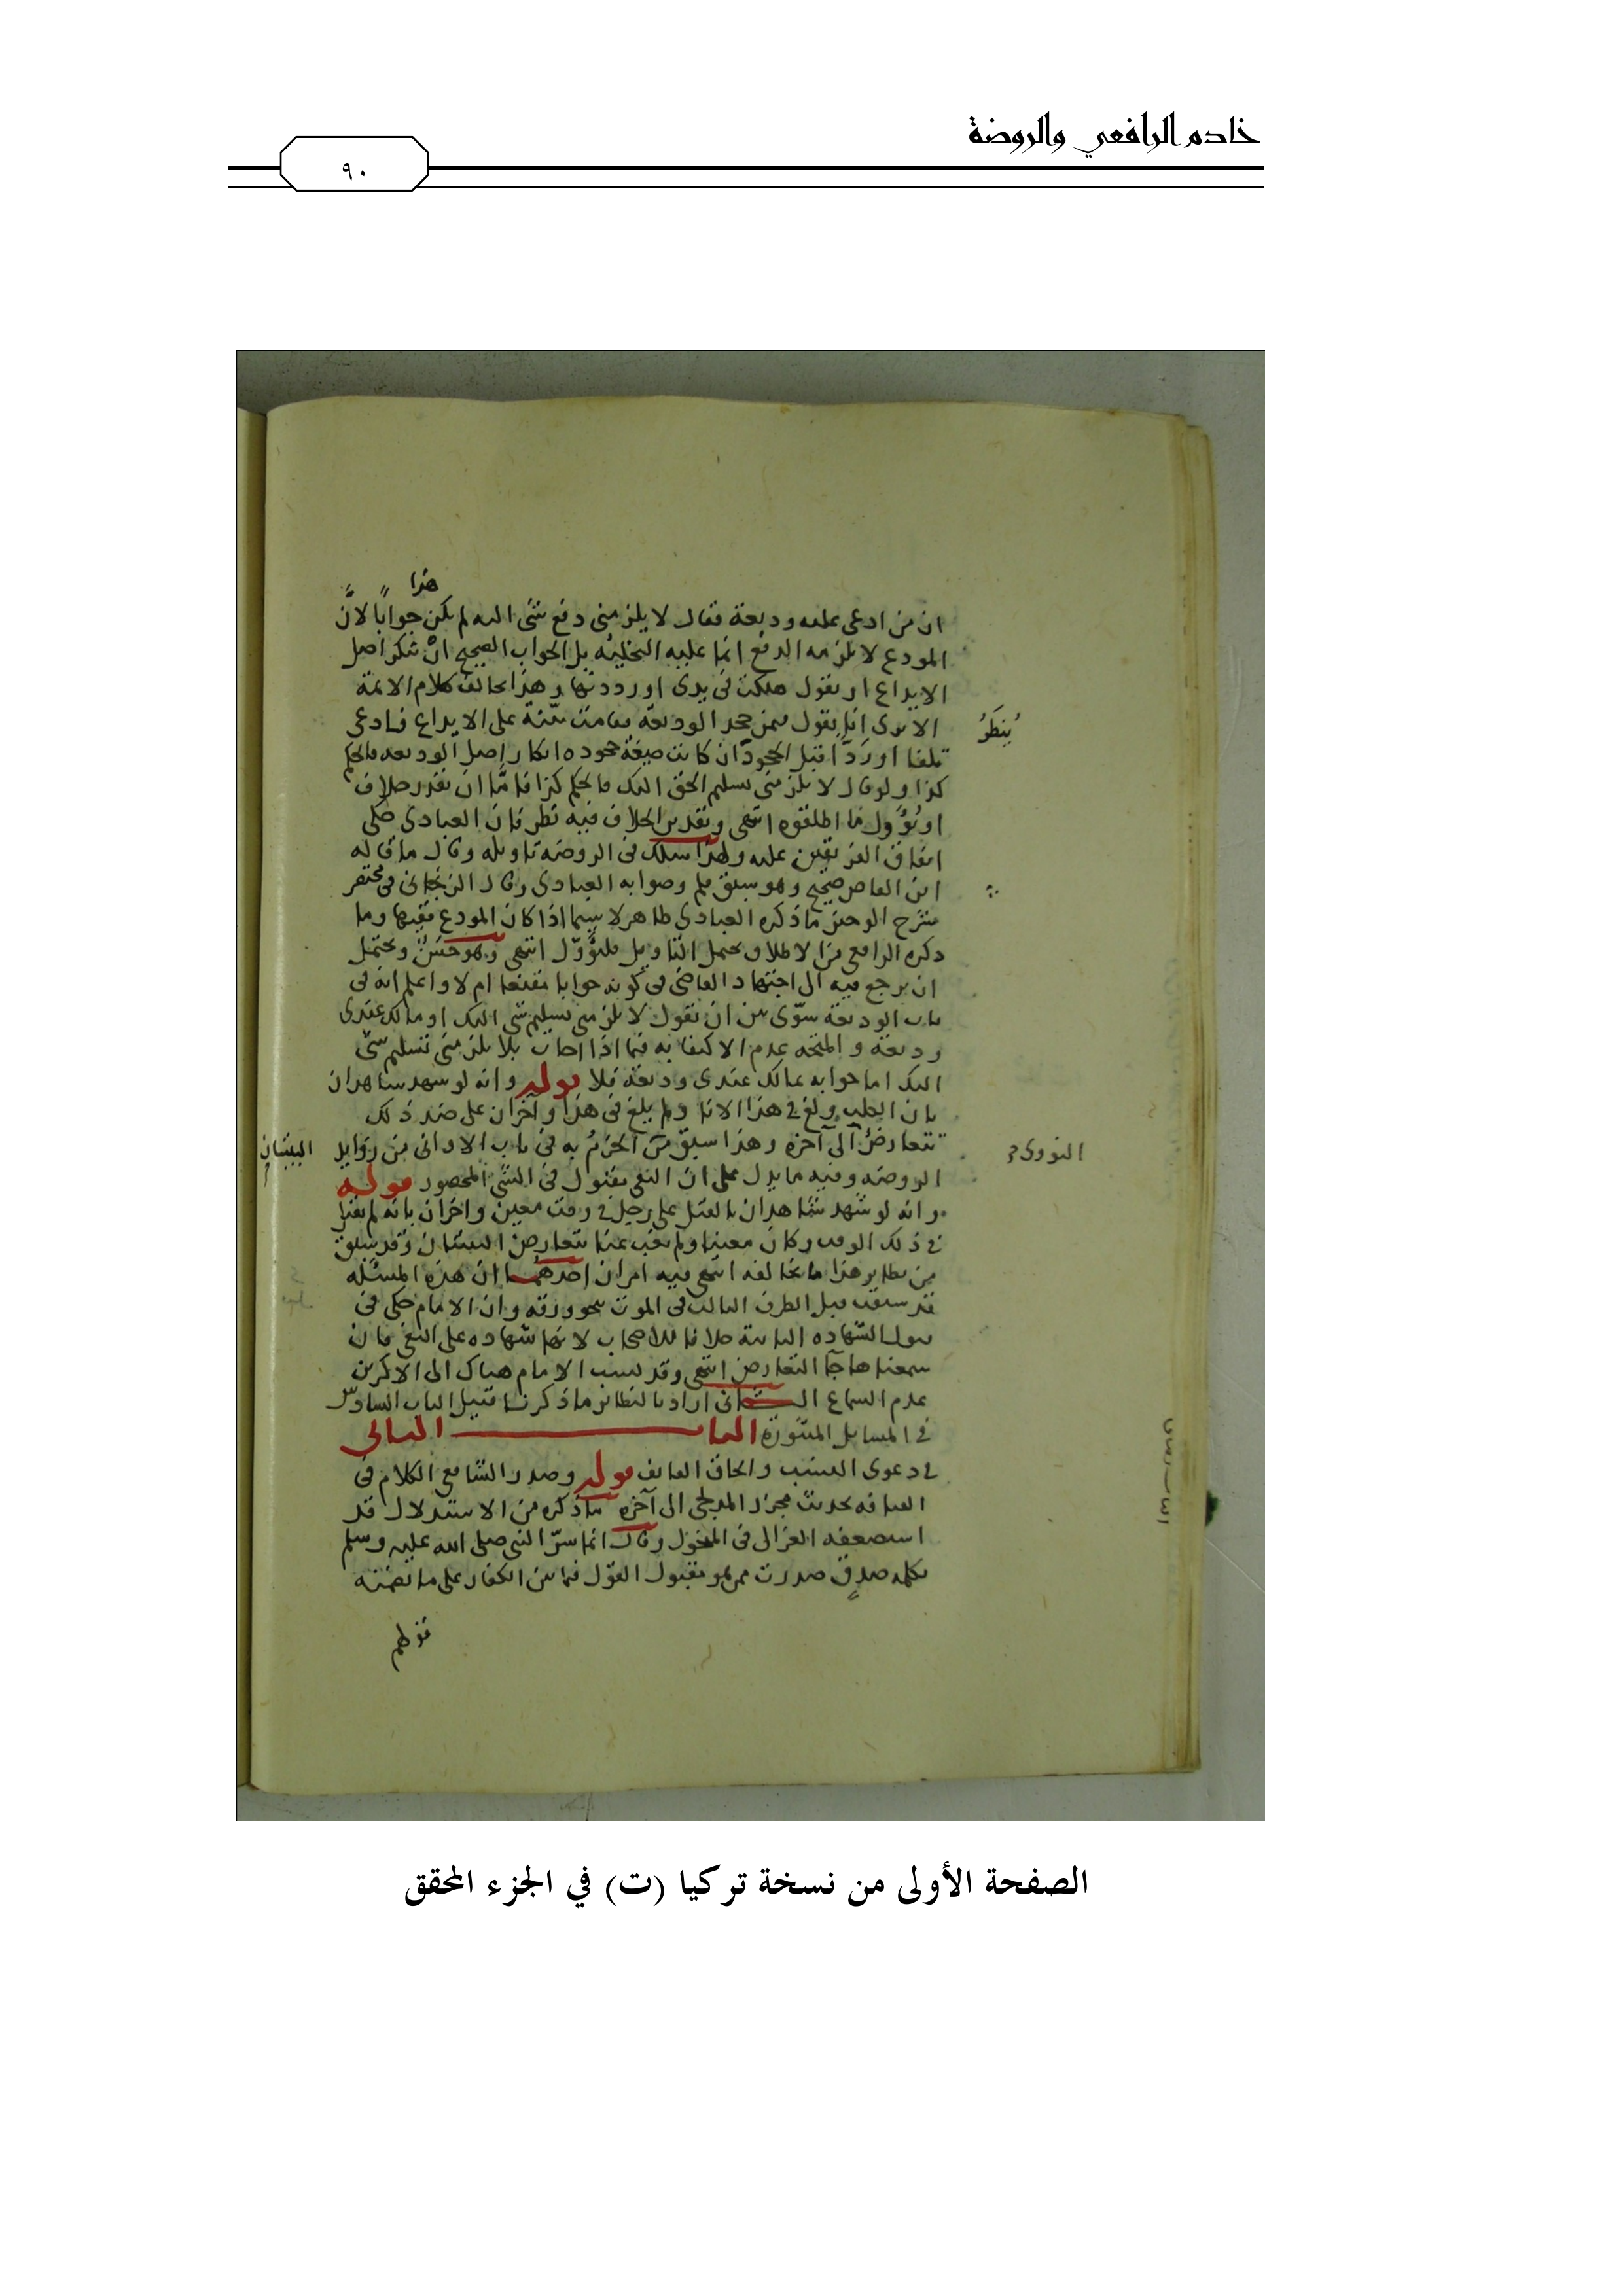 خادم الرافعي والروضة
٩٠
هذا
ان من ادعى عليه وديعة فقال لا يلزمنى دفع شئ اليه لم يكن جوابا لان
المودع لا يلزمه الدفع انما عليه التخلية بل الجواب الصحيح ان ينكر اصل
الايداع او يقول هلكت فى يدى او رددتها وهذا يخالف كلام الائمة
الا ترى انا نقول فيمن جحد الوديعة فقامت بينة على الايداع فادعى
يُنظَرُ
تلفا او ردا قبل الجحود ان كانت صيغة جحوده انكار اصل الوديعه فالحكم
كذا ولو قال لا يلزمنى تسليم الحق اليك فالحكم كذا فاما ان يقدر خلاف
او يؤول ما اطلقوه انتهى وتقدير الخلاف فيه نظر فان العبادى حكى
اتفاق الفريقين عليه ولهذا سلك فى الروضه تاويله وقال ما قاله
ابن القاص صحيح وهو سبق قلم وصوابه العبادى وقال الزنجانى فى مختصر
شرح الوجيز ما ذكره العبادى ظاهر لا سيما اذا كان المودع فقيها وما
ذكره الرافعى من الاطلاق يحتمل التاويل فليؤول انتهى وهو حسن ويحتمل
ان يرجع فيه الى اجتهاد القاضى فى كونه جوابا مقنعا ام لا واعلم انه فى
باب الوديعة سوى بين ان يقول لا يلزمنى تسليم شى اليك او مالك عندى
وديعة والمتجه عدم الاكتفا به فيما اذا اجاب بلا يلزمنى تسليم شى
اليك اما جوابه بمالك عندى وديعة فلا قوله وانه لو شهد شاهدان
بان الكلب ولغ فى هذا الانا ولم يلغ فى هذا وآخران على ضد ذلك
تتعارض الى آخره وهذا سبق من الجزم به فى باب الاوانى من زوايد
النووى
البينتان
الروضه وفيه ما يدل على ان النفى مقبول فى الشئ المحصور قوله
وانه لو شهد شاهدان بالقتل على رجل فى وقت معين واخران بانه لم يقتل
فى ذلك الوقت وكان معينا ولم يغب عنا تتعارض البينتان وقد سبق
من نظاير هذا ما يخالفه انتهى فيه امران احدهما ان هذه المسئله
قد سبقت قبيل الطرف الثالث فى الموت بنحو ورقه وان الامام حكى فى
قبول الشهاده الثانية خلافا للاصحاب لانها شهاده على النفى فان
سمعناها جا التعارض انتهى وقد نسب الامام هناك الى الاكثرين
عدم السماع الثانى اراد بالنظائر ما ذكرنا قبيل الباب السادس
فى المسايل المنثورة الباب الثانى
فى دعوى النسب والحاق القايف قوله وصدر الشافعى الكلام فى
القيافه بحديث مجزز المدلجى الى آخره ما ذكره من الاستدلال قد
استضعفه الغزالى فى المنخول وقال انما سر النبى صلى الله عليه وسلم
بكلمه صدق صدرت ممن هو مقبول القول فيما بين الكفار على مناقضته
قولهم
الصفحة الأولى من نسخة تركيا (ت) في الجزء المحقق